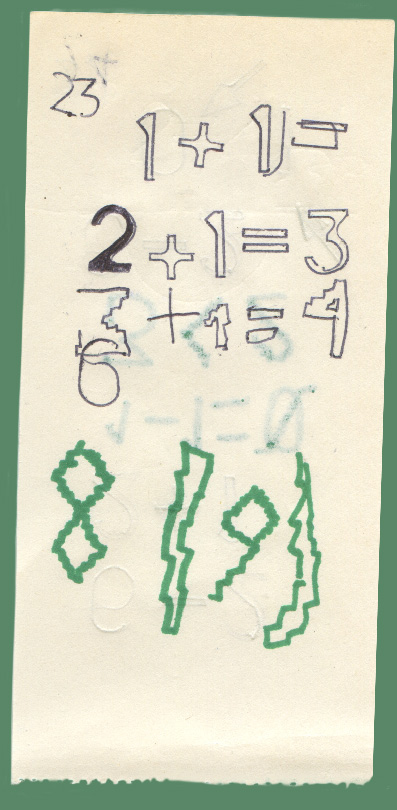 23
1 + 1 =
2 + 1 = 3
3 + 1 = 4
6
8 1 9 1